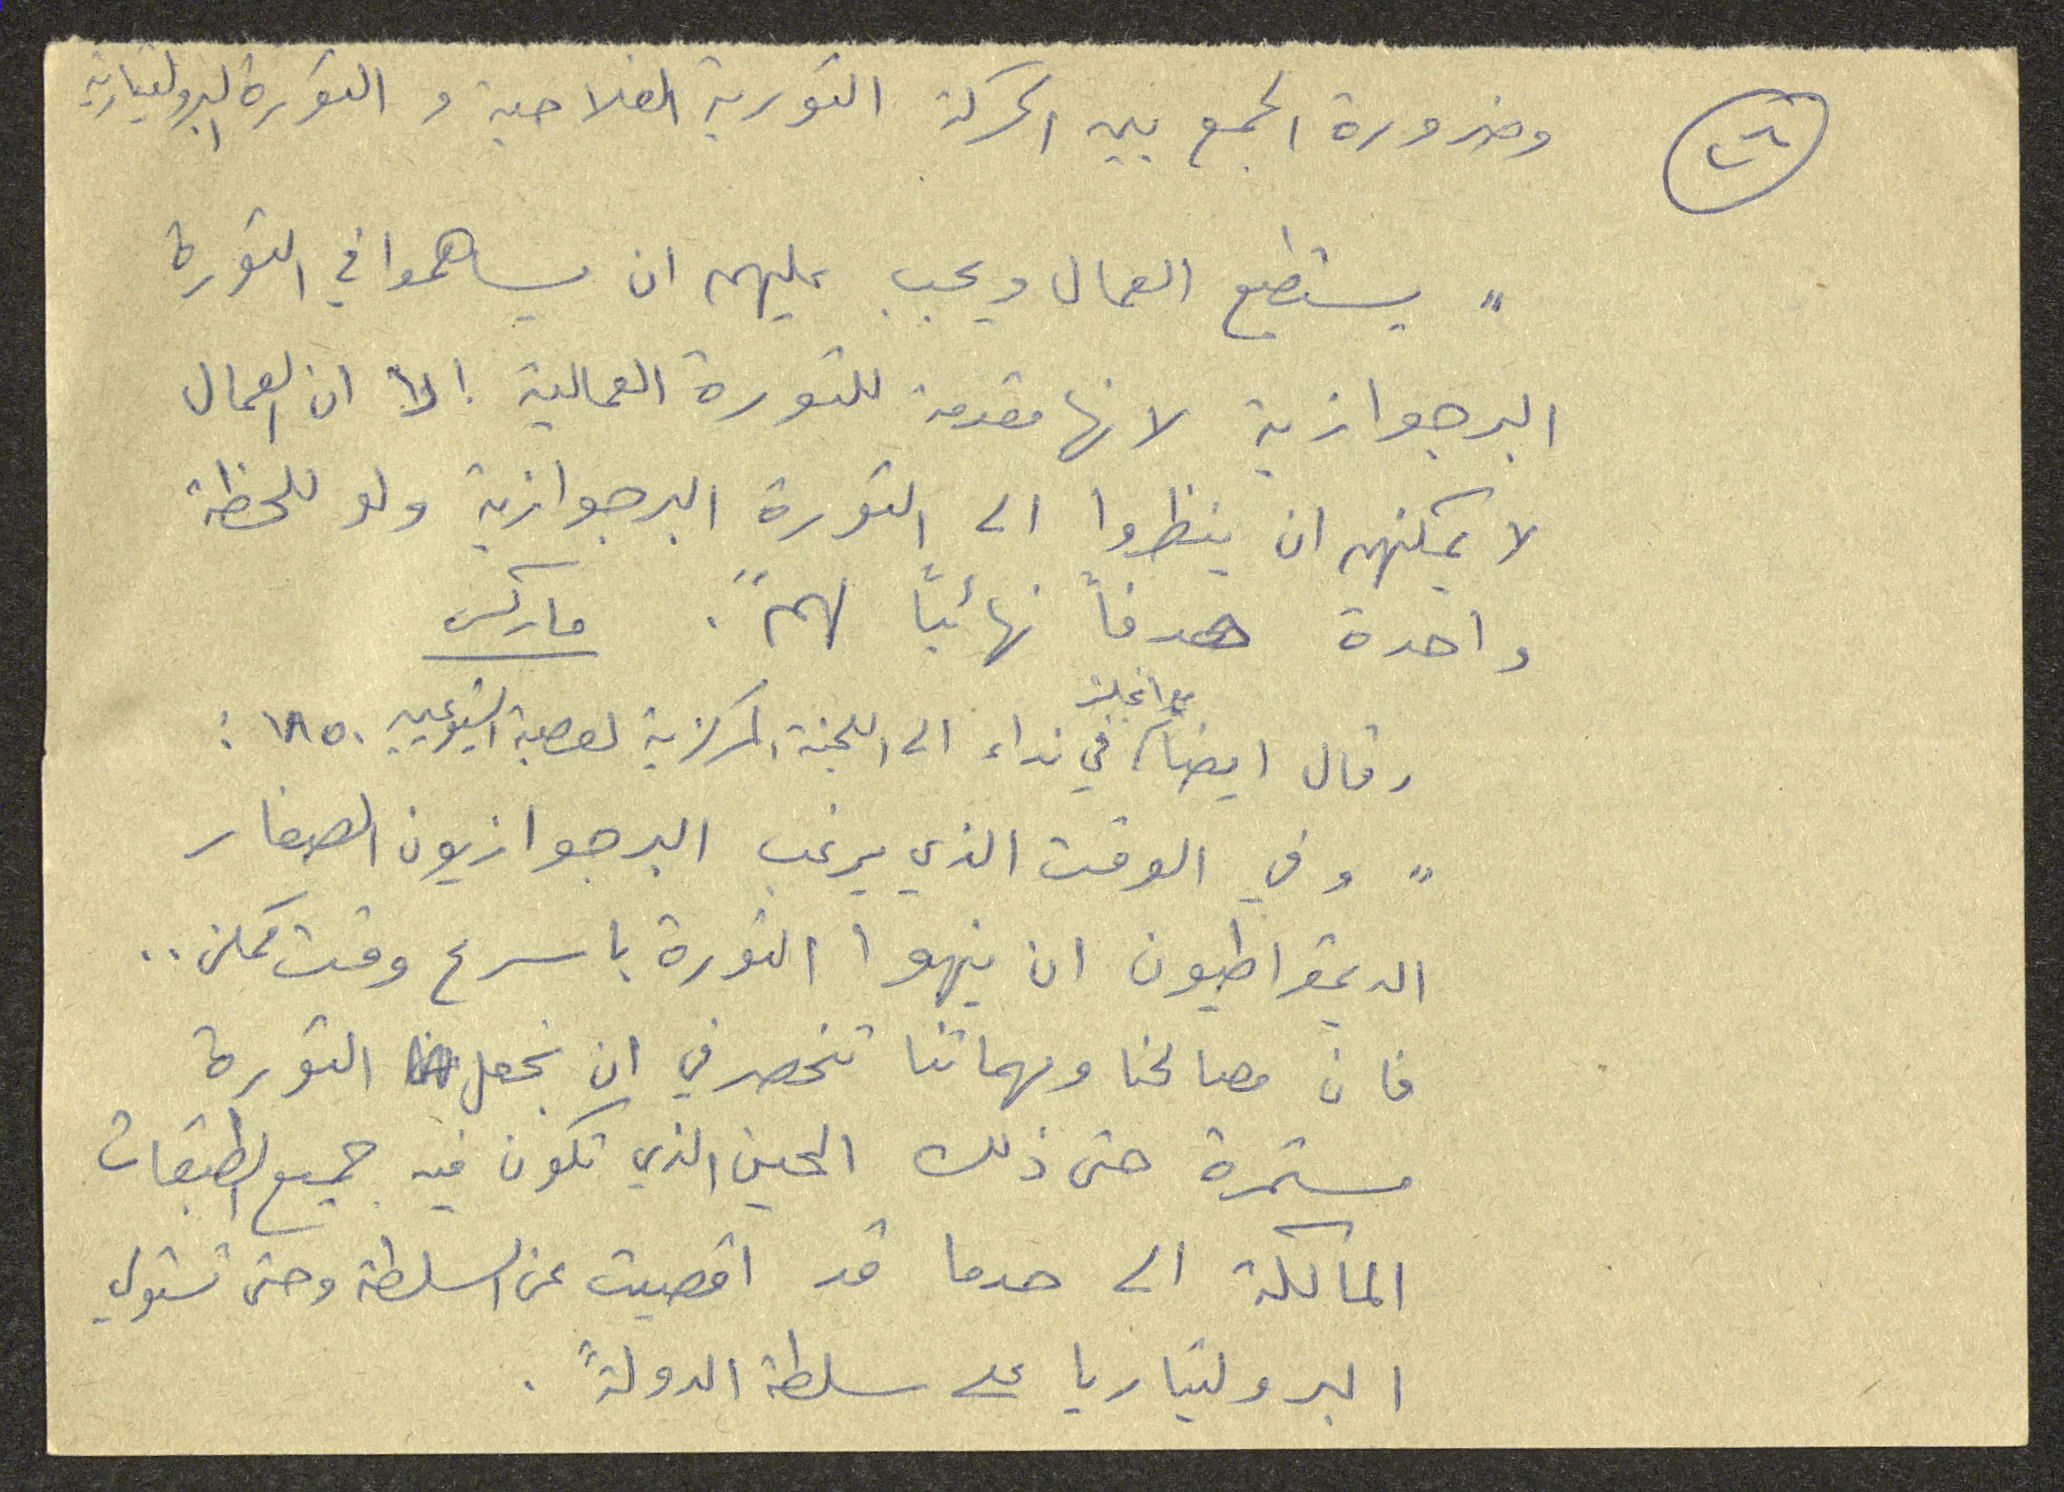 وضرورة الجمع بين الحركة الثورية الفلاحية و الثورة البروليتارية
" يستطيع العمال ويجب عليهم ان يساهموا في الثورة
البرجوازية لانها مقدمة للثورة العمالية ! الا ان العمال
لا يمكنهم ان ينظروا الى الثورة البرجوازية ولو للحظة
واحدة هدفاً نهائياً لهم ". ماركس
وقال ايضاً مع انجلز في نداء الى اللجنة المركزية لعصبة الشيوعيين ١٨٥٠ :
" وفي الوقت الذي يرغب البرجوازيون الصغار
الديمقراطيون ان ينهوا الثورة باسرع وقت ممكن ..
فان مصالحنا ومهماتنا تنحصر في ان نجعل الثورة
مستمرة حتى ذلك الحين الذي تكون فيه جميع الطبقات
المالكة الى حد ما قد اقصيت عن السلطة وحتى تستولي
البروليتاريا على سلطة الدولة ".